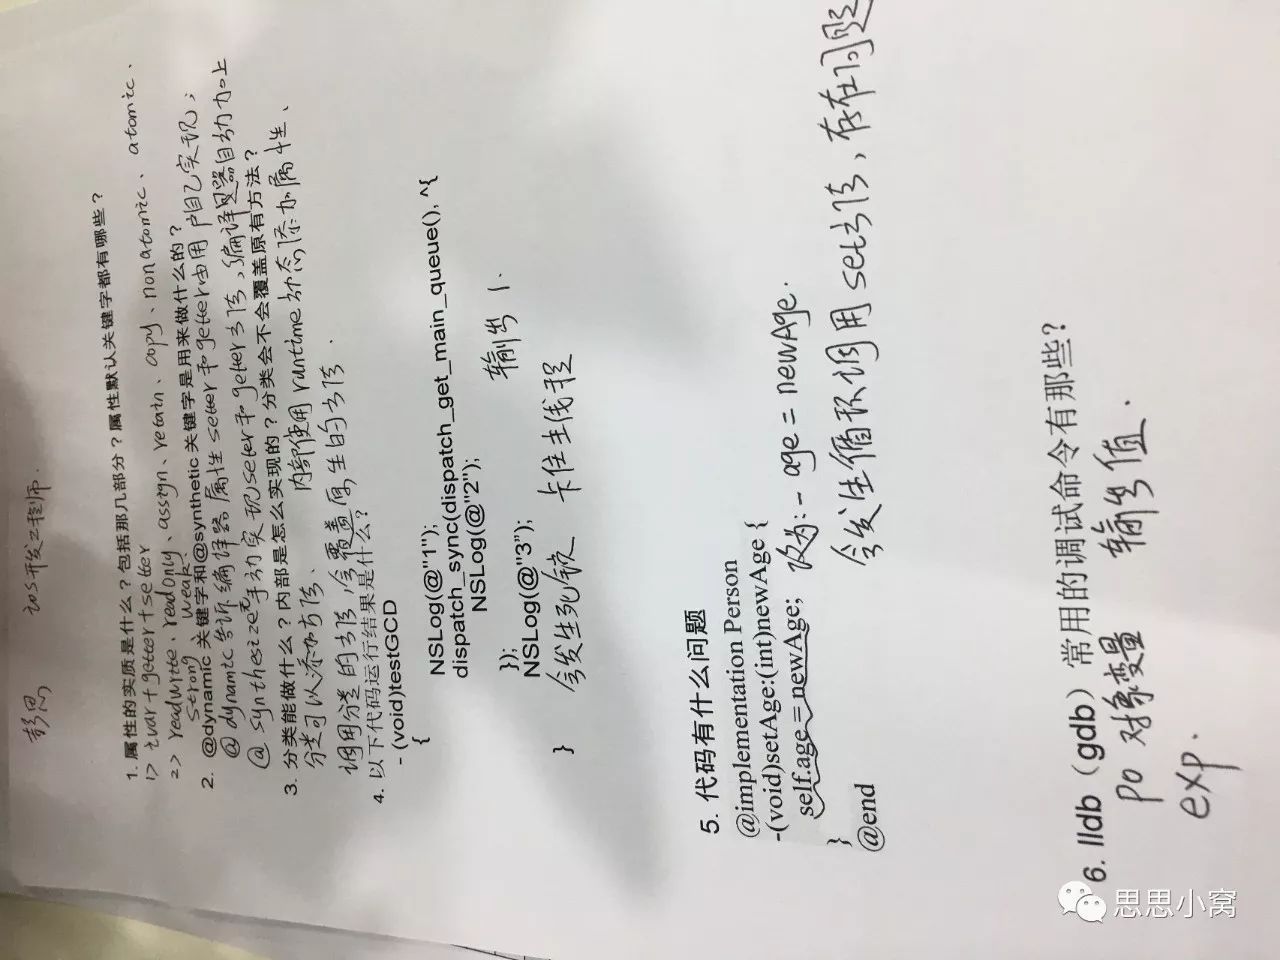 彭思 iOS开发工程师.
1. 属性的实质是什么？包括那几部分？属性默认关键字都有哪些？
1> ivar + getter + setter
2> readwrite、readonly、assign、retain、copy、nonatomic、atomic、
strong、weak
2. @dynamic 关键字和@synthetic 关键字是用来做什么的？
@dynamic 告诉编译器属性setter和getter由用户自己实现；
@synthesize手动实现seter和geter方法，编译器自动加上
3. 分类能做什么？内部是怎么实现的？分类会不会覆盖原有方法？
分类可以添加方法、 内部使用runtime动态添加属性、
调用分类的方法，会覆盖原生的方法．
4. 以下代码运行结果是什么？
- (void)testGCD
{
NSLog(@"1");
dispatch_sync(dispatch_get_main_queue(), ^{
NSLog(@"2");
输出 1.
});
NSLog(@"3");
会发生死锁 卡住主线程
}
5. 代码有什么问题
@implementation Person
-(void)setAge:(int)newAge {
self.age = newAge; 改为: - age = newAge.
}
会发生循环调用set方法，存在问题
@end
6. lldb（gdb）常用的调试命令有那些？
po 对象变量 输出值.
exp.
思思小窝